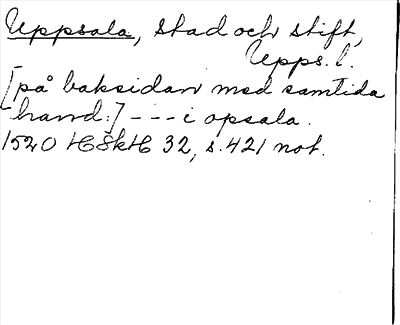 Uppsala, stad och stift,
Upps. l.
[på baksidan med samtida
hand:] --- i opsala.
1520 HSkH 32, s. 421 not.